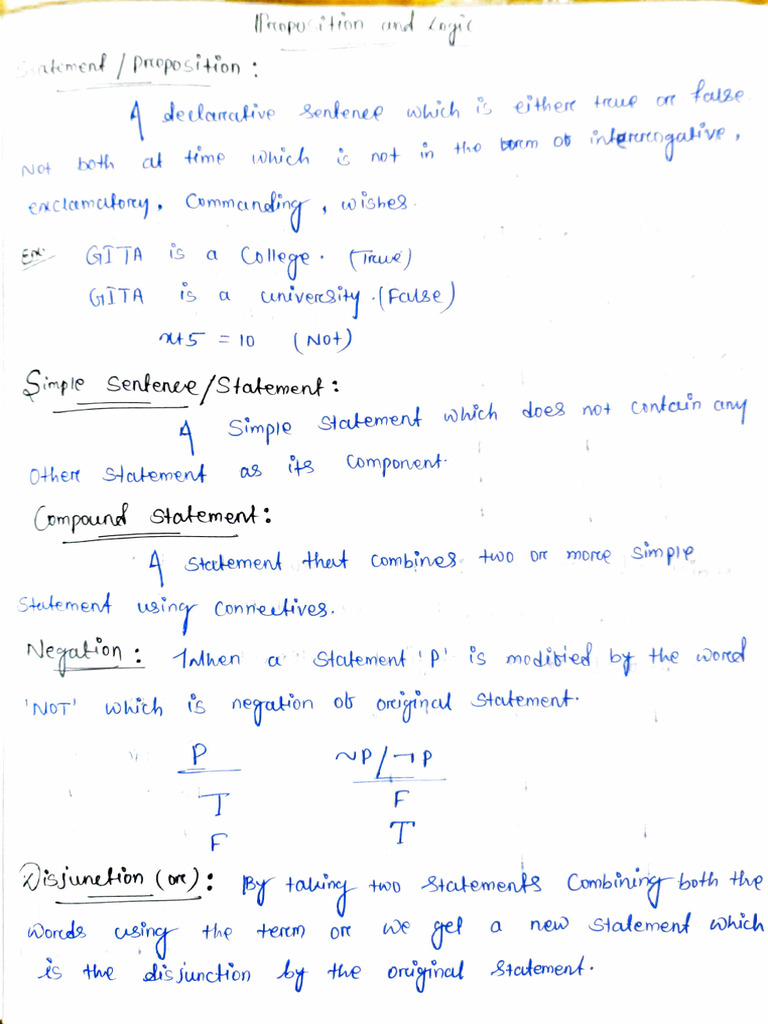 Proposition and Logic
Statement / Proposition :
A declarative sentence which is either true or false
Not both at time which is not in the form of interrogative,
exclamatory, Commanding, wishes.
Ex: GITA is a College. (True)
GITA is a university. (False)
x+5 = 10 (Not)
Simple Sentence/Statement :
A Simple statement which does not contain any
Other statement as its component.
Compound Statement :
A statement that combines two or more simple
statement using connectives.
Negation : When a statement 'P' is modified by the word
'NOT' which is negation of original statement.
P ~P/¬P
T F
F T
Disjunction (or) : By taking two statements Combining both the
words using the term or we get a new statement which
is the disjunction by the original statement.